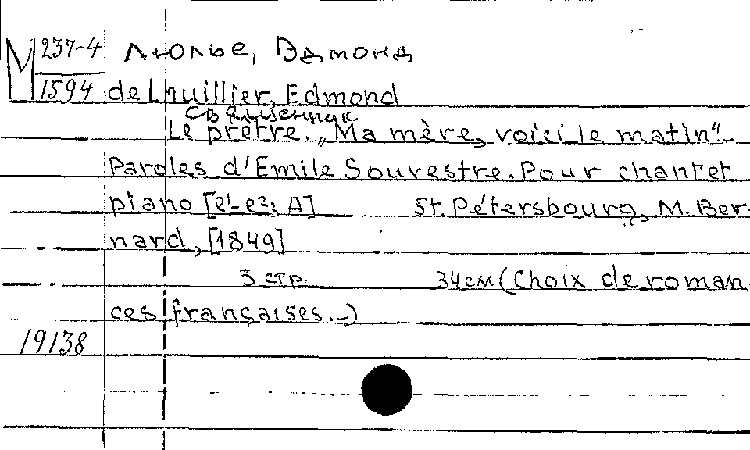 М 237-4 Люлье, Эдмонд
1594 de Lhuillier, Edmond
священник
Le prêtre. „Ma mère, voici le matin“.
Paroles d'Emile Souvestre. Pour chant et
piano [e¹-e²; A] St. Pétersbourg, M. Ber-
nard, [1849]
3 стр. 34 см (Choix de roman-
ces françaises.-)
19138